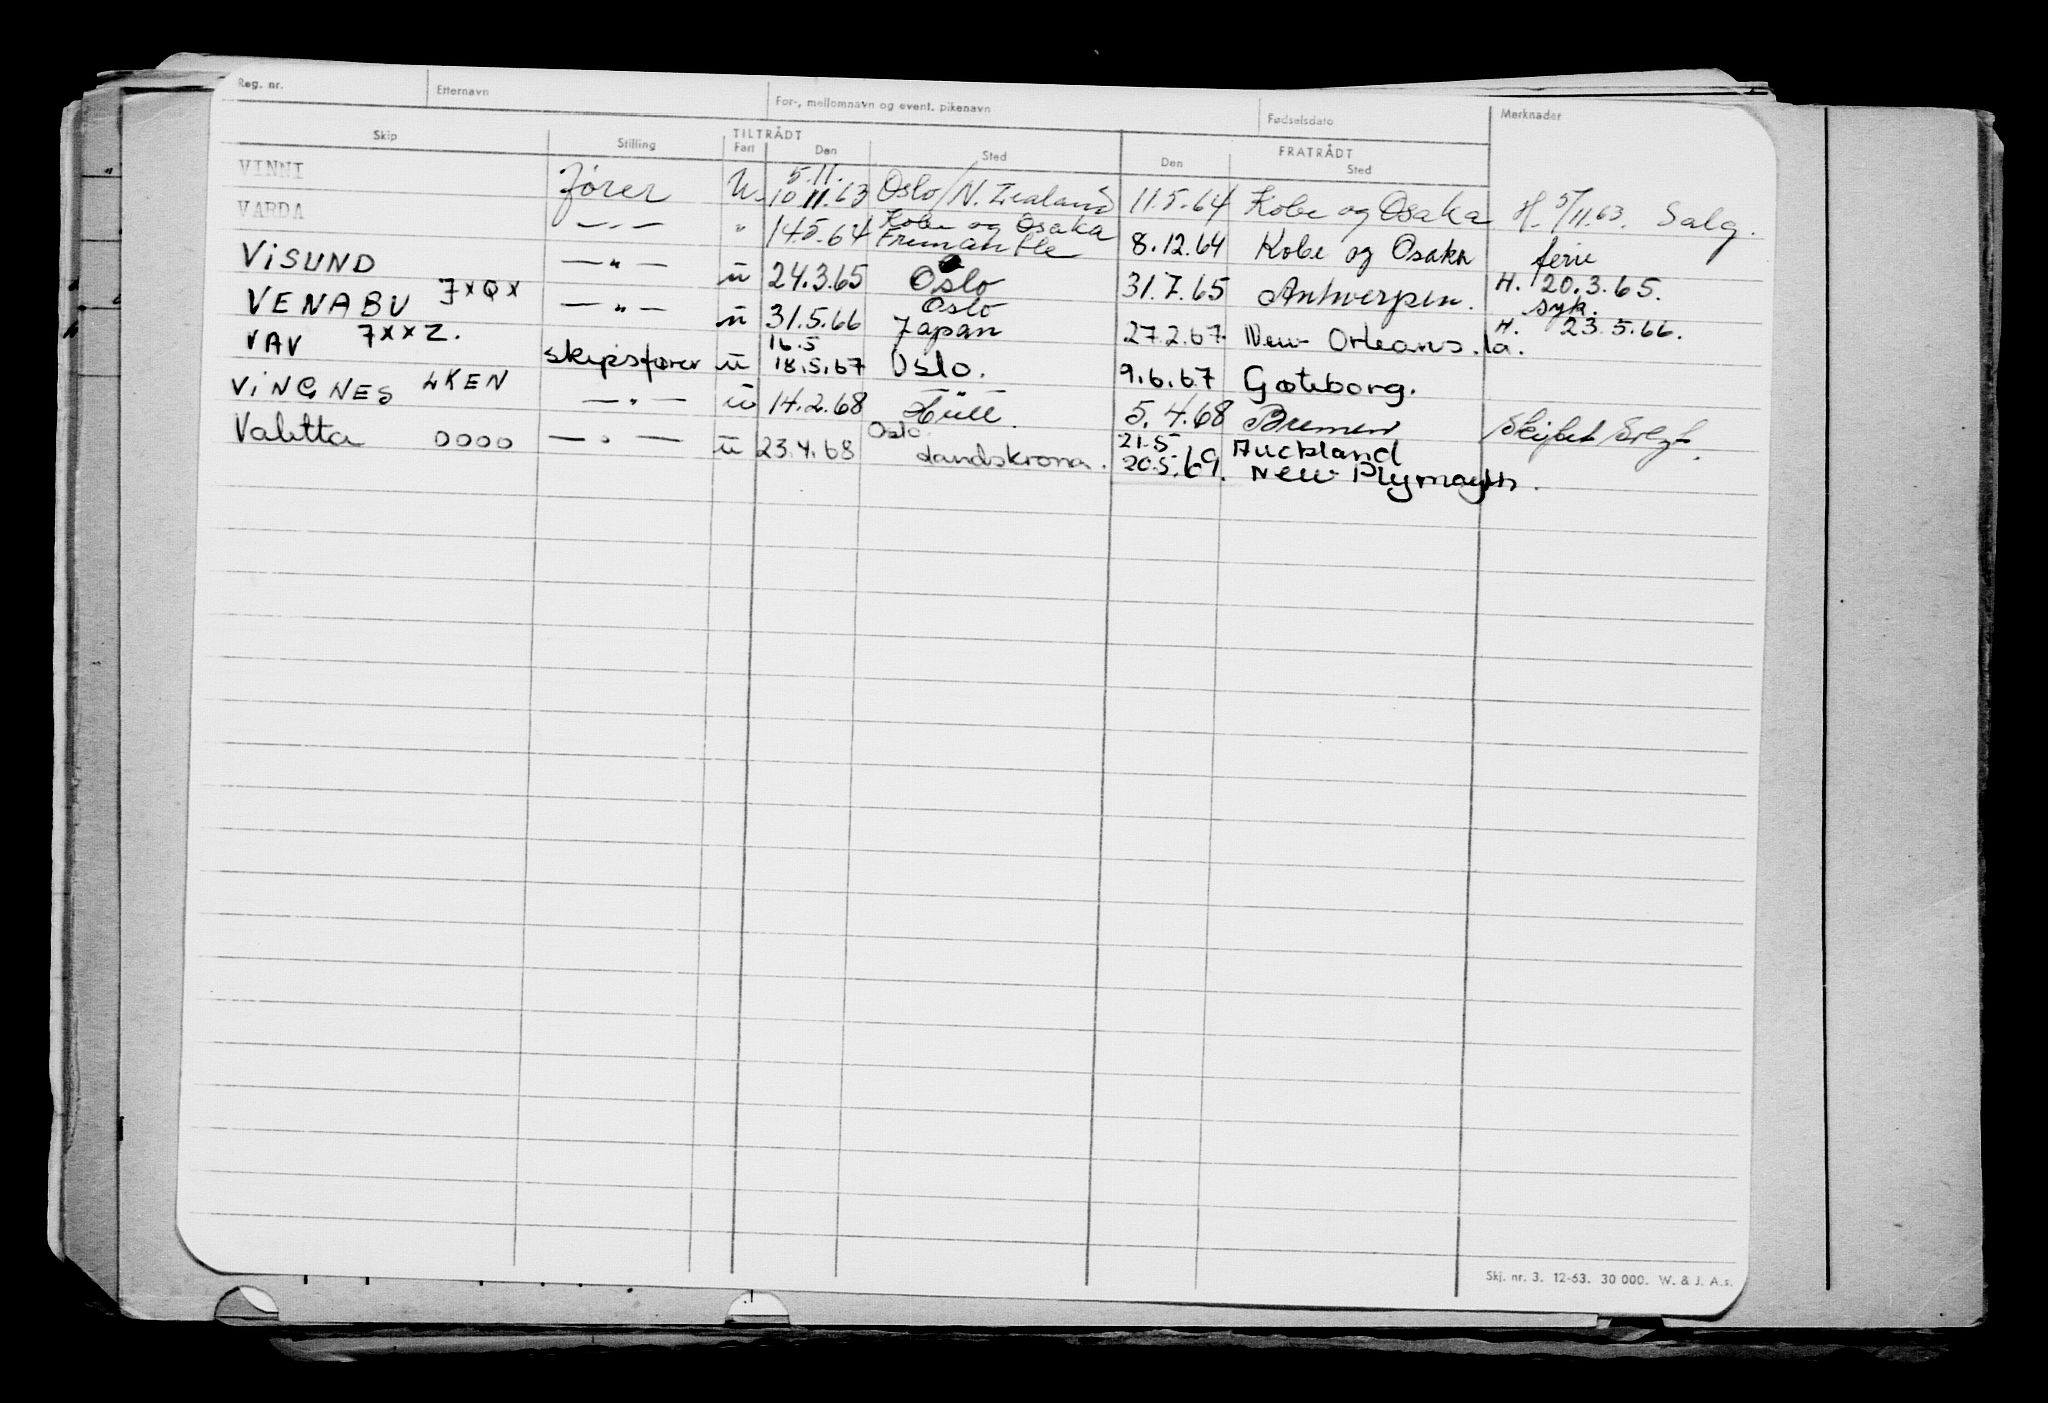 Reg. nr. Etternavn For-, mellomnavn og event. pikenavn Fødselsdato Merknader
Skip Stilling TILTRÅDT FRATRÅDT
Fart Den Sted Den Sted
VINNI fører U. 5.11. 10.11.63 Oslo/N. Zealand 11.5.64 Kobe og Osaka H. 5/11.63. Salg.
VARDA —"— " 14.5.64 Kobe og Osaka Fremantle 8.12.64 Kobe og Osaka ferie
VISUND —"— u 24.3.65 Oslo 31.7.65 Antwerpen. H. 20.3.65. syk.
VENABU JXQX —"— u 31.5.66 Oslo Japan 27.2.67. New Orleans. la. H. 23.5.66.
VAV JXXZ. skipsfører u 16.5 18.5.67 Oslo. 9.6.67 Gøteborg.
VINGNES LKEN —"— u 14.2.68 Hull. 5.4.68 Bremen Skibet solgt.
Valetta OOOO —"— u 23.4.68 Oslo. Landskrona. 21.5 20.5.69. Auckland New Plymouth.
Skj. nr. 3. 12-63. 30 000. W. & J. A.s.